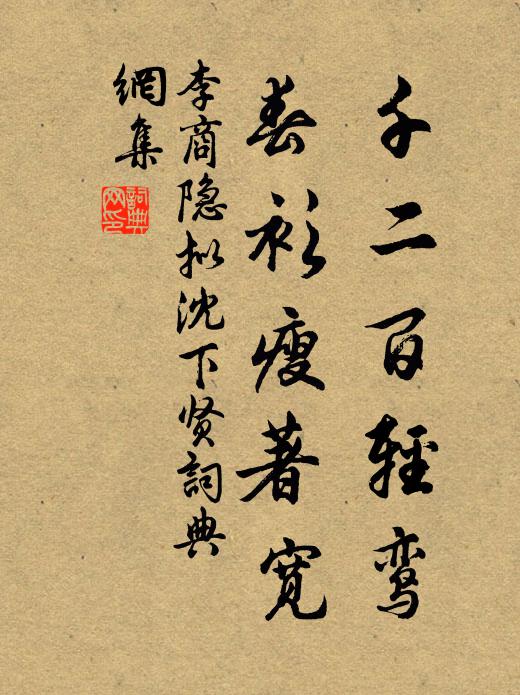 千二百轻鸾
春衫瘦著宽
李商隐拟沈下贤词典
网集
词典网印